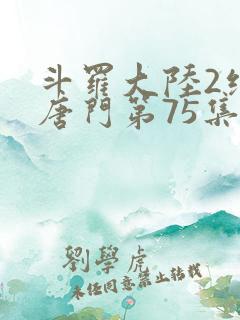 斗羅大陸2絕
唐門第75集
劉學虎
未任同意禁止轉載